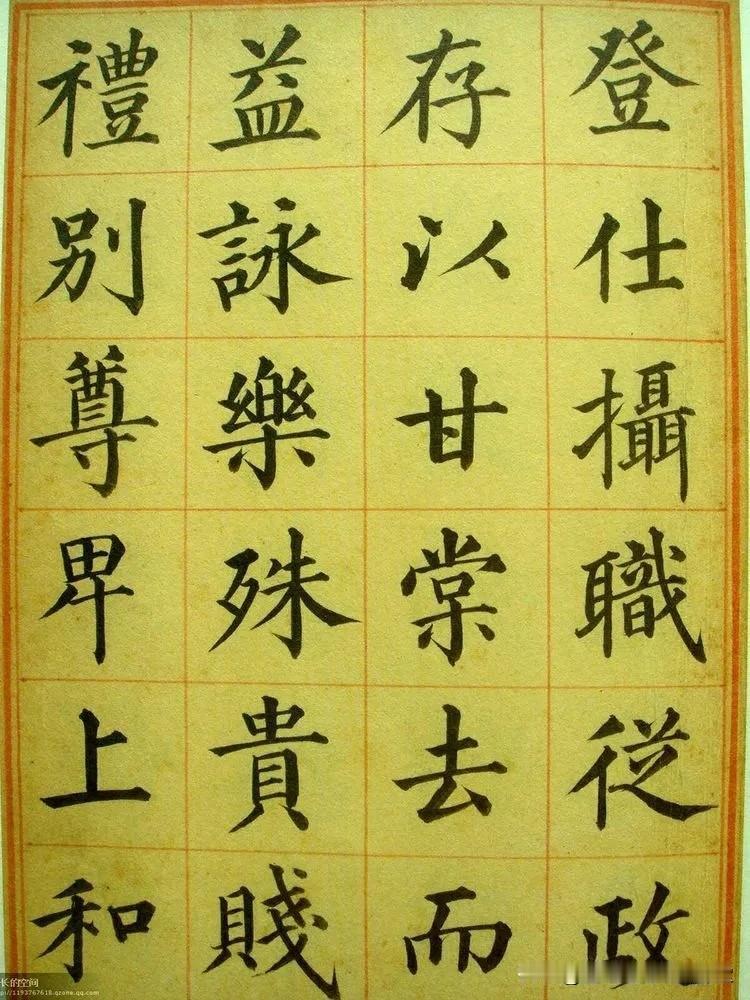 登仕攝職從政
存以甘棠去而
益詠樂殊貴賤
禮別尊卑上和
长的空间
p://1193767618.qzone.qq.com